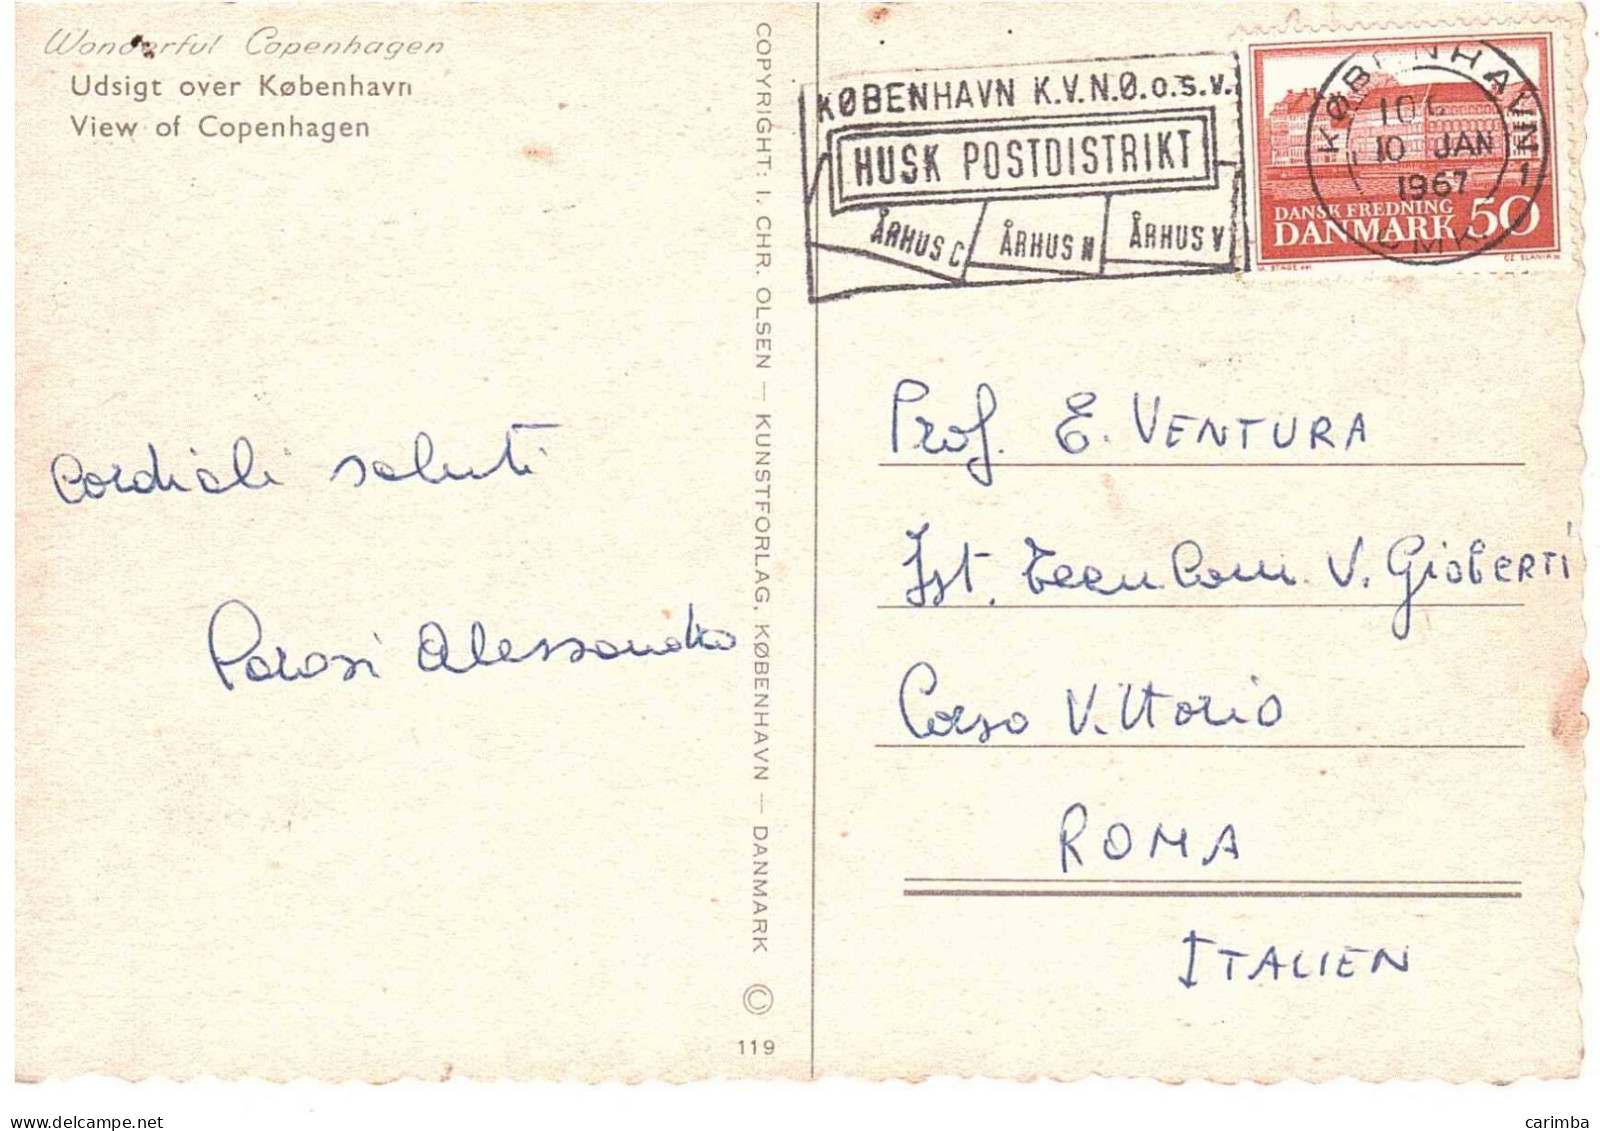 Wonderful Copenhagen
Udsigt over København
View of Copenhagen
COPYRIGHT: I. CHR. OLSEN — KUNSTFORLAG, KØBENHAVN — DANMARK ©
119
KØBENHAVN K.V.N.Ø.o.s.v.
HUSK POSTDISTRIKT
ÅRHUS C
ÅRHUS N
ÅRHUS V
KØBENHAVN
10 JAN
1967
OMK
1
DANSK FREDNING
DANMARK 50
Cordiali saluti
Parosi Alessandro
Prof. E. VENTURA
Ist. Tecn Com. V. GIOBERTI
Corso Vittorio
ROMA
ITALIEN
carimba